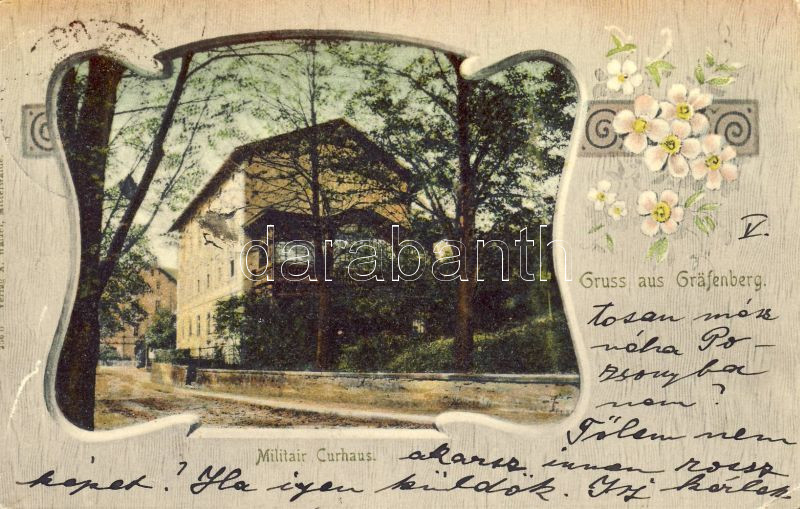 V.
Gruss aus Gräfenberg.
tosan mész
néha Po-
zsonyba
nem?
Tőlem nem
akarsz innen rossz
képet? Ha igen küldök. Irj kérlek
Militair Curhaus.
darabanth